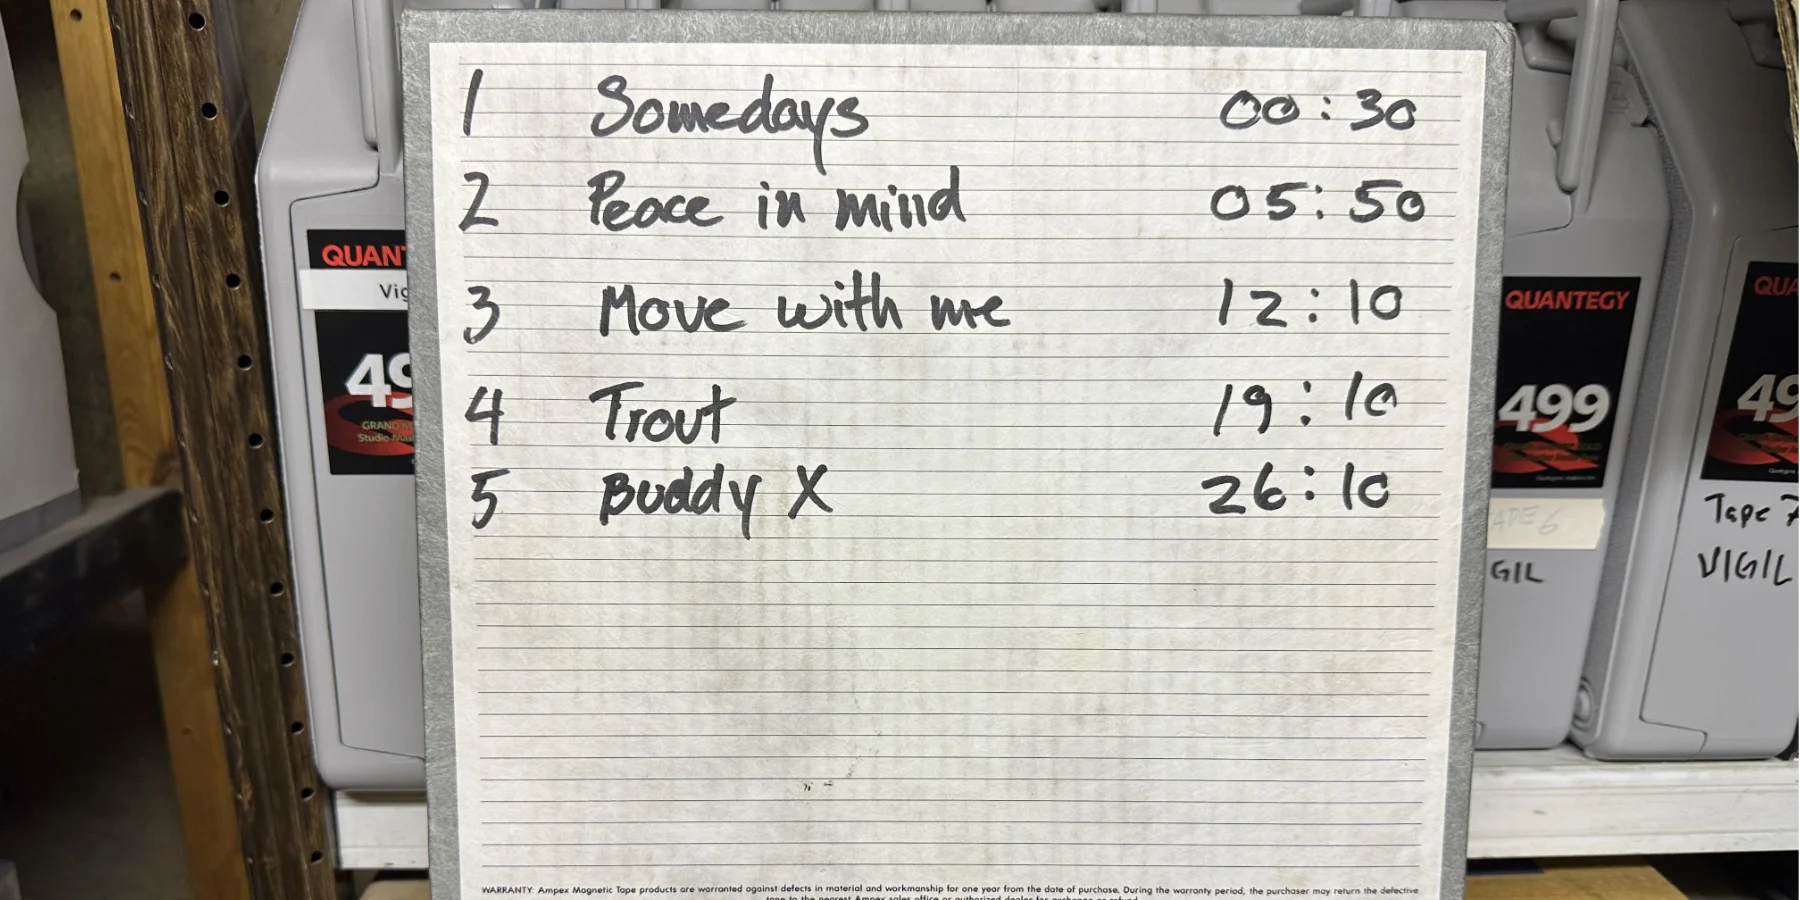 1 Somedays 00:30
2 Peace in mind 05:50
3 Move with me 12:10
4 Trout 19:10
5 Buddy X 26:10
WARRANTY: Ampex Magnetic Tape products are warranted against defects in material and workmanship for one year from the date of purchase. During the warranty period, the purchaser may return the defective
tape to the nearest Ampex sales office or authorized dealer for exchange or refund.
QUANT
Vig
49
GRAND M
Studio Mas
QUANTEGY
499
GIL
QUA
49
Tape 7
VIGIL